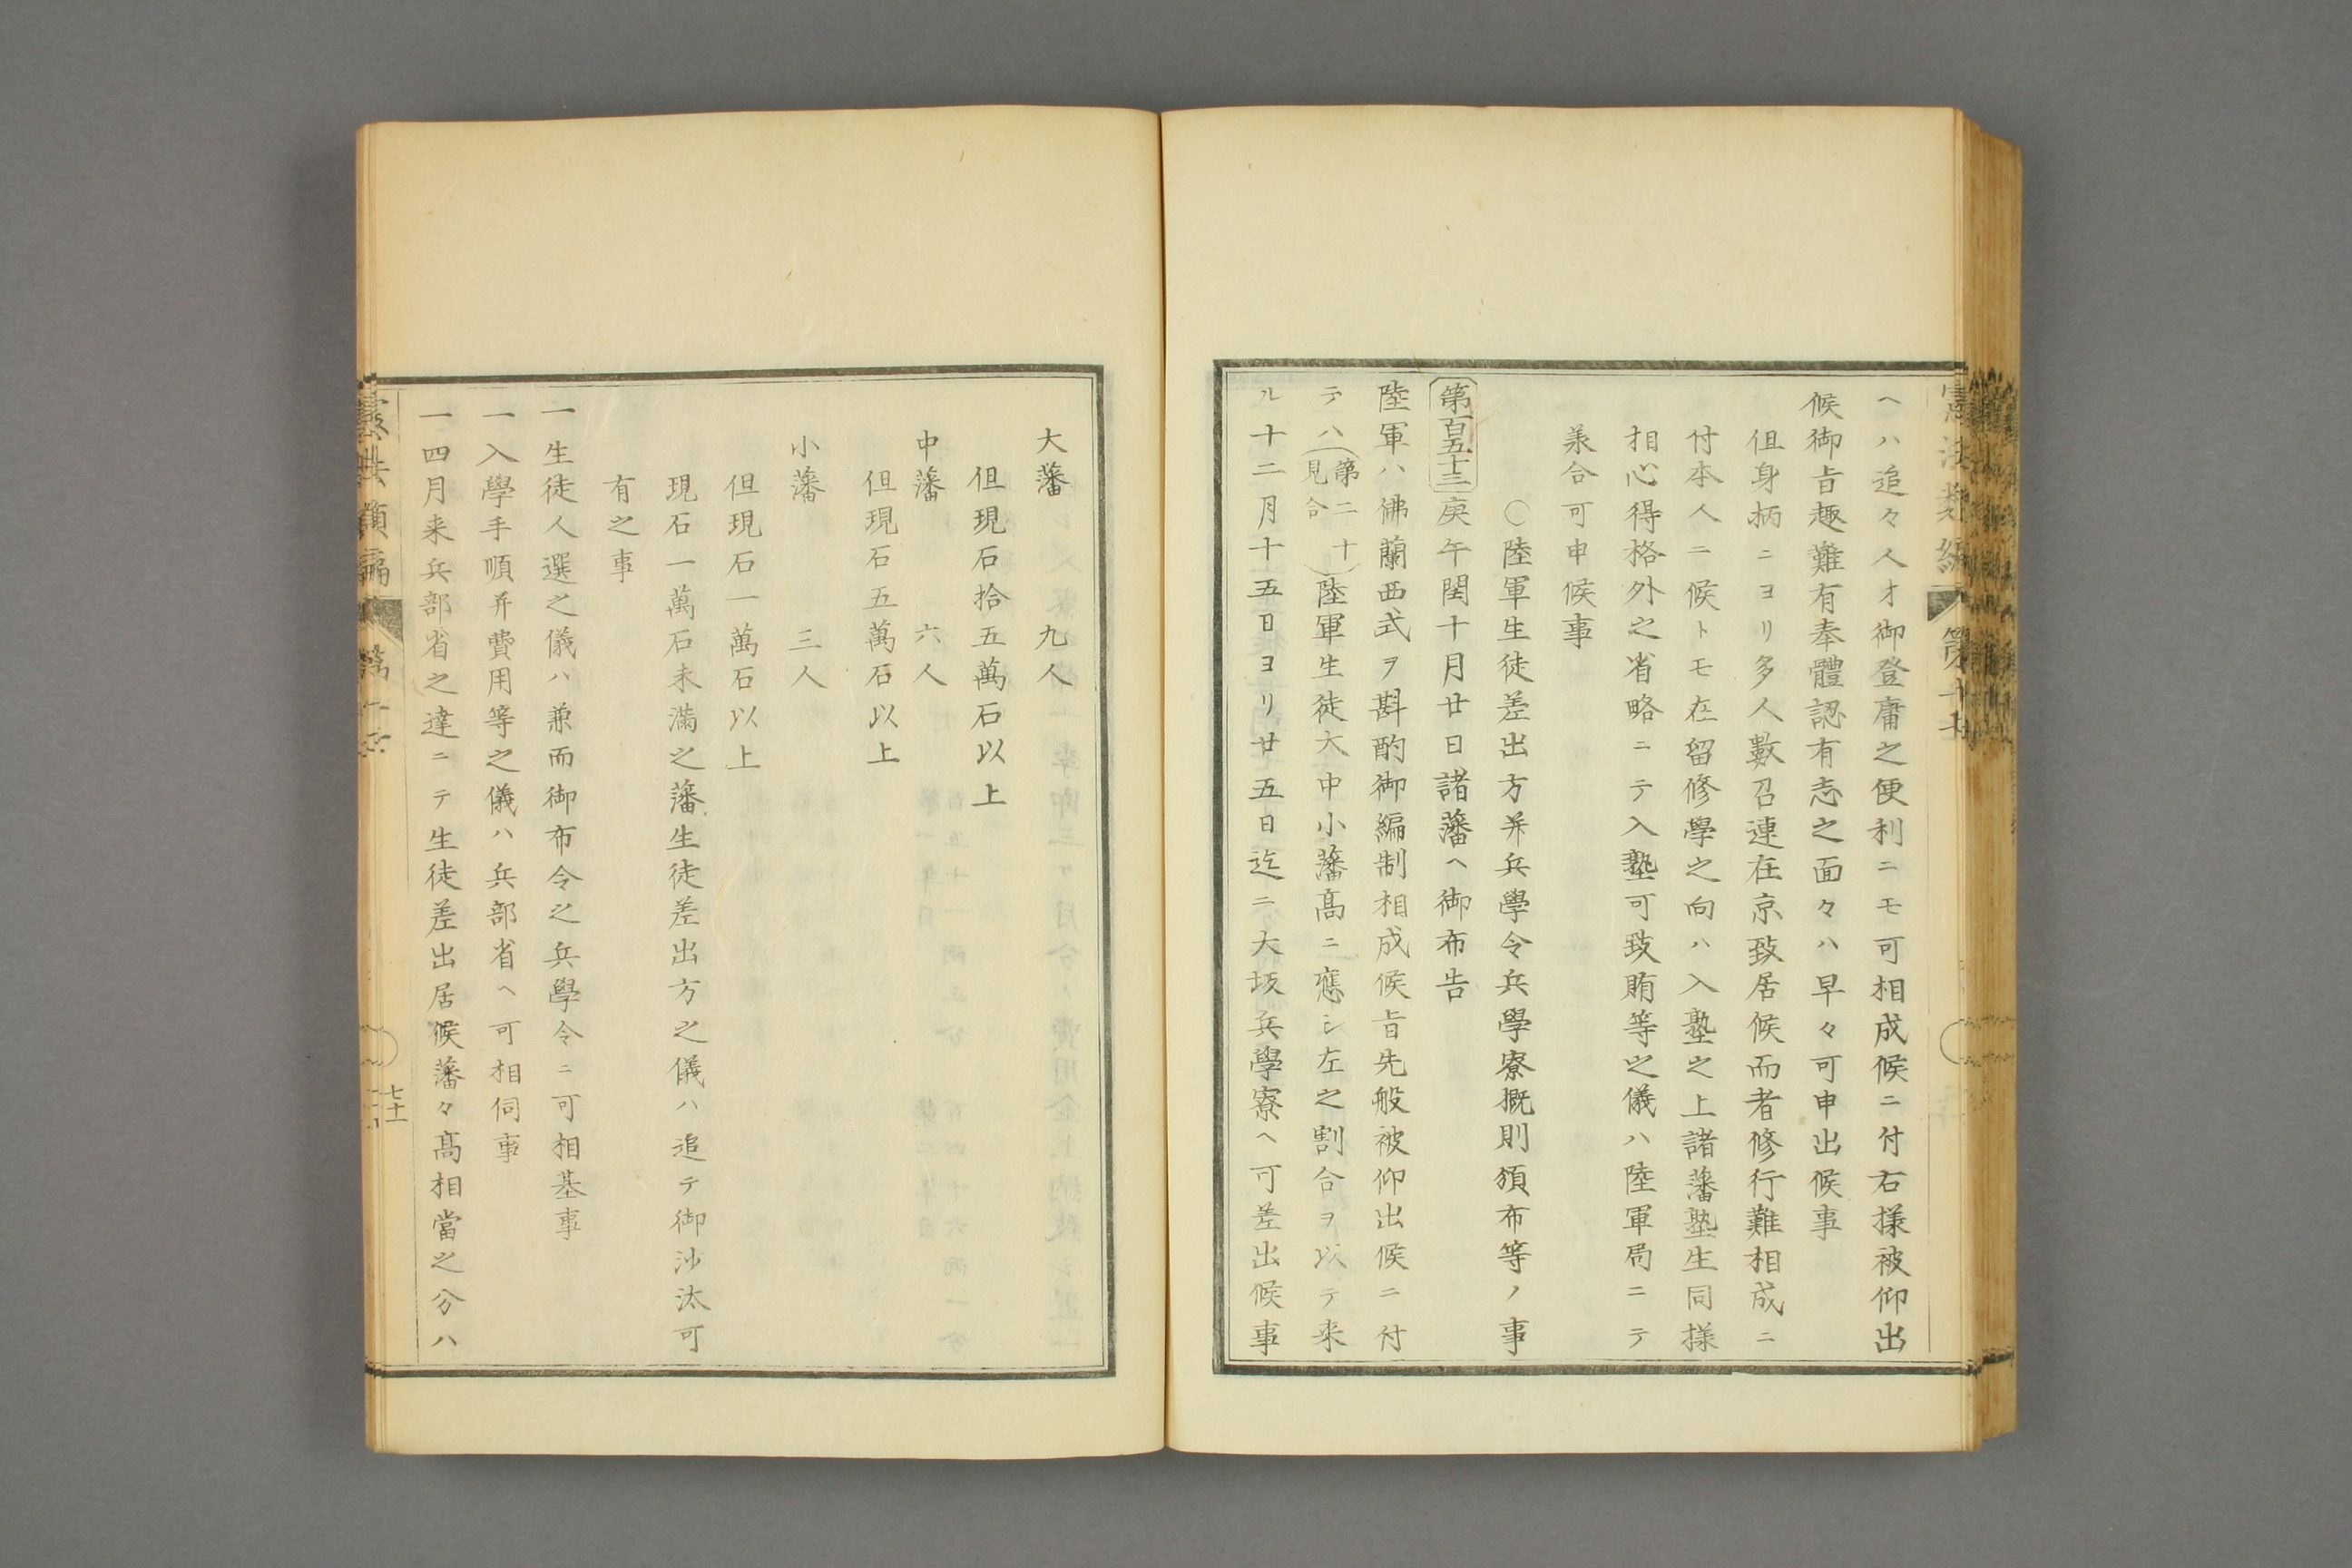 ヘハ追々人才御登庸之便利ニモ可相成候ニ付右様被仰出
候御旨趣難有奉體認有志之面々ハ早々可申出候事
但身柄ニヨリ多人數召連在京致居候而者修行難相成ニ
付本人ニ候トモ在留修學之向ハ入塾之上諸藩塾生同様
相心得格外之省略ニテ入塾可致賄等之儀ハ陸軍局ニテ
羕合可申候事
○陸軍生徒差出方并兵學令兵學寮概則頒布等ノ事
第百五十三庚午閏十月廿日諸藩ヘ御布告
陸軍ハ佛蘭西式ヲ斟酌御編制相成候旨先般被仰出候ニ付
テハ(第二十見合)陸軍生徒大中小藩高ニ應シ左之割合ヲ以テ来
ル十二月十五日ヨリ廿五日迄ニ大坂兵學寮ヘ可差出候事
大藩 九人
但現石拾五萬石以上
中藩 六人
但現石五萬石以上
小藩 三人
但現石一萬石以上
現石一萬石未滿之藩生徒差出方之儀ハ追テ御沙汰可
有之事
一生徒人選之儀ハ兼而御布令之兵學令ニ可相基事
一入學手順并費用等之儀ハ兵部省ヘ可相伺事
一四月来兵部省之達ニテ生徒差出居候藩々高相當之分ハ
七十一